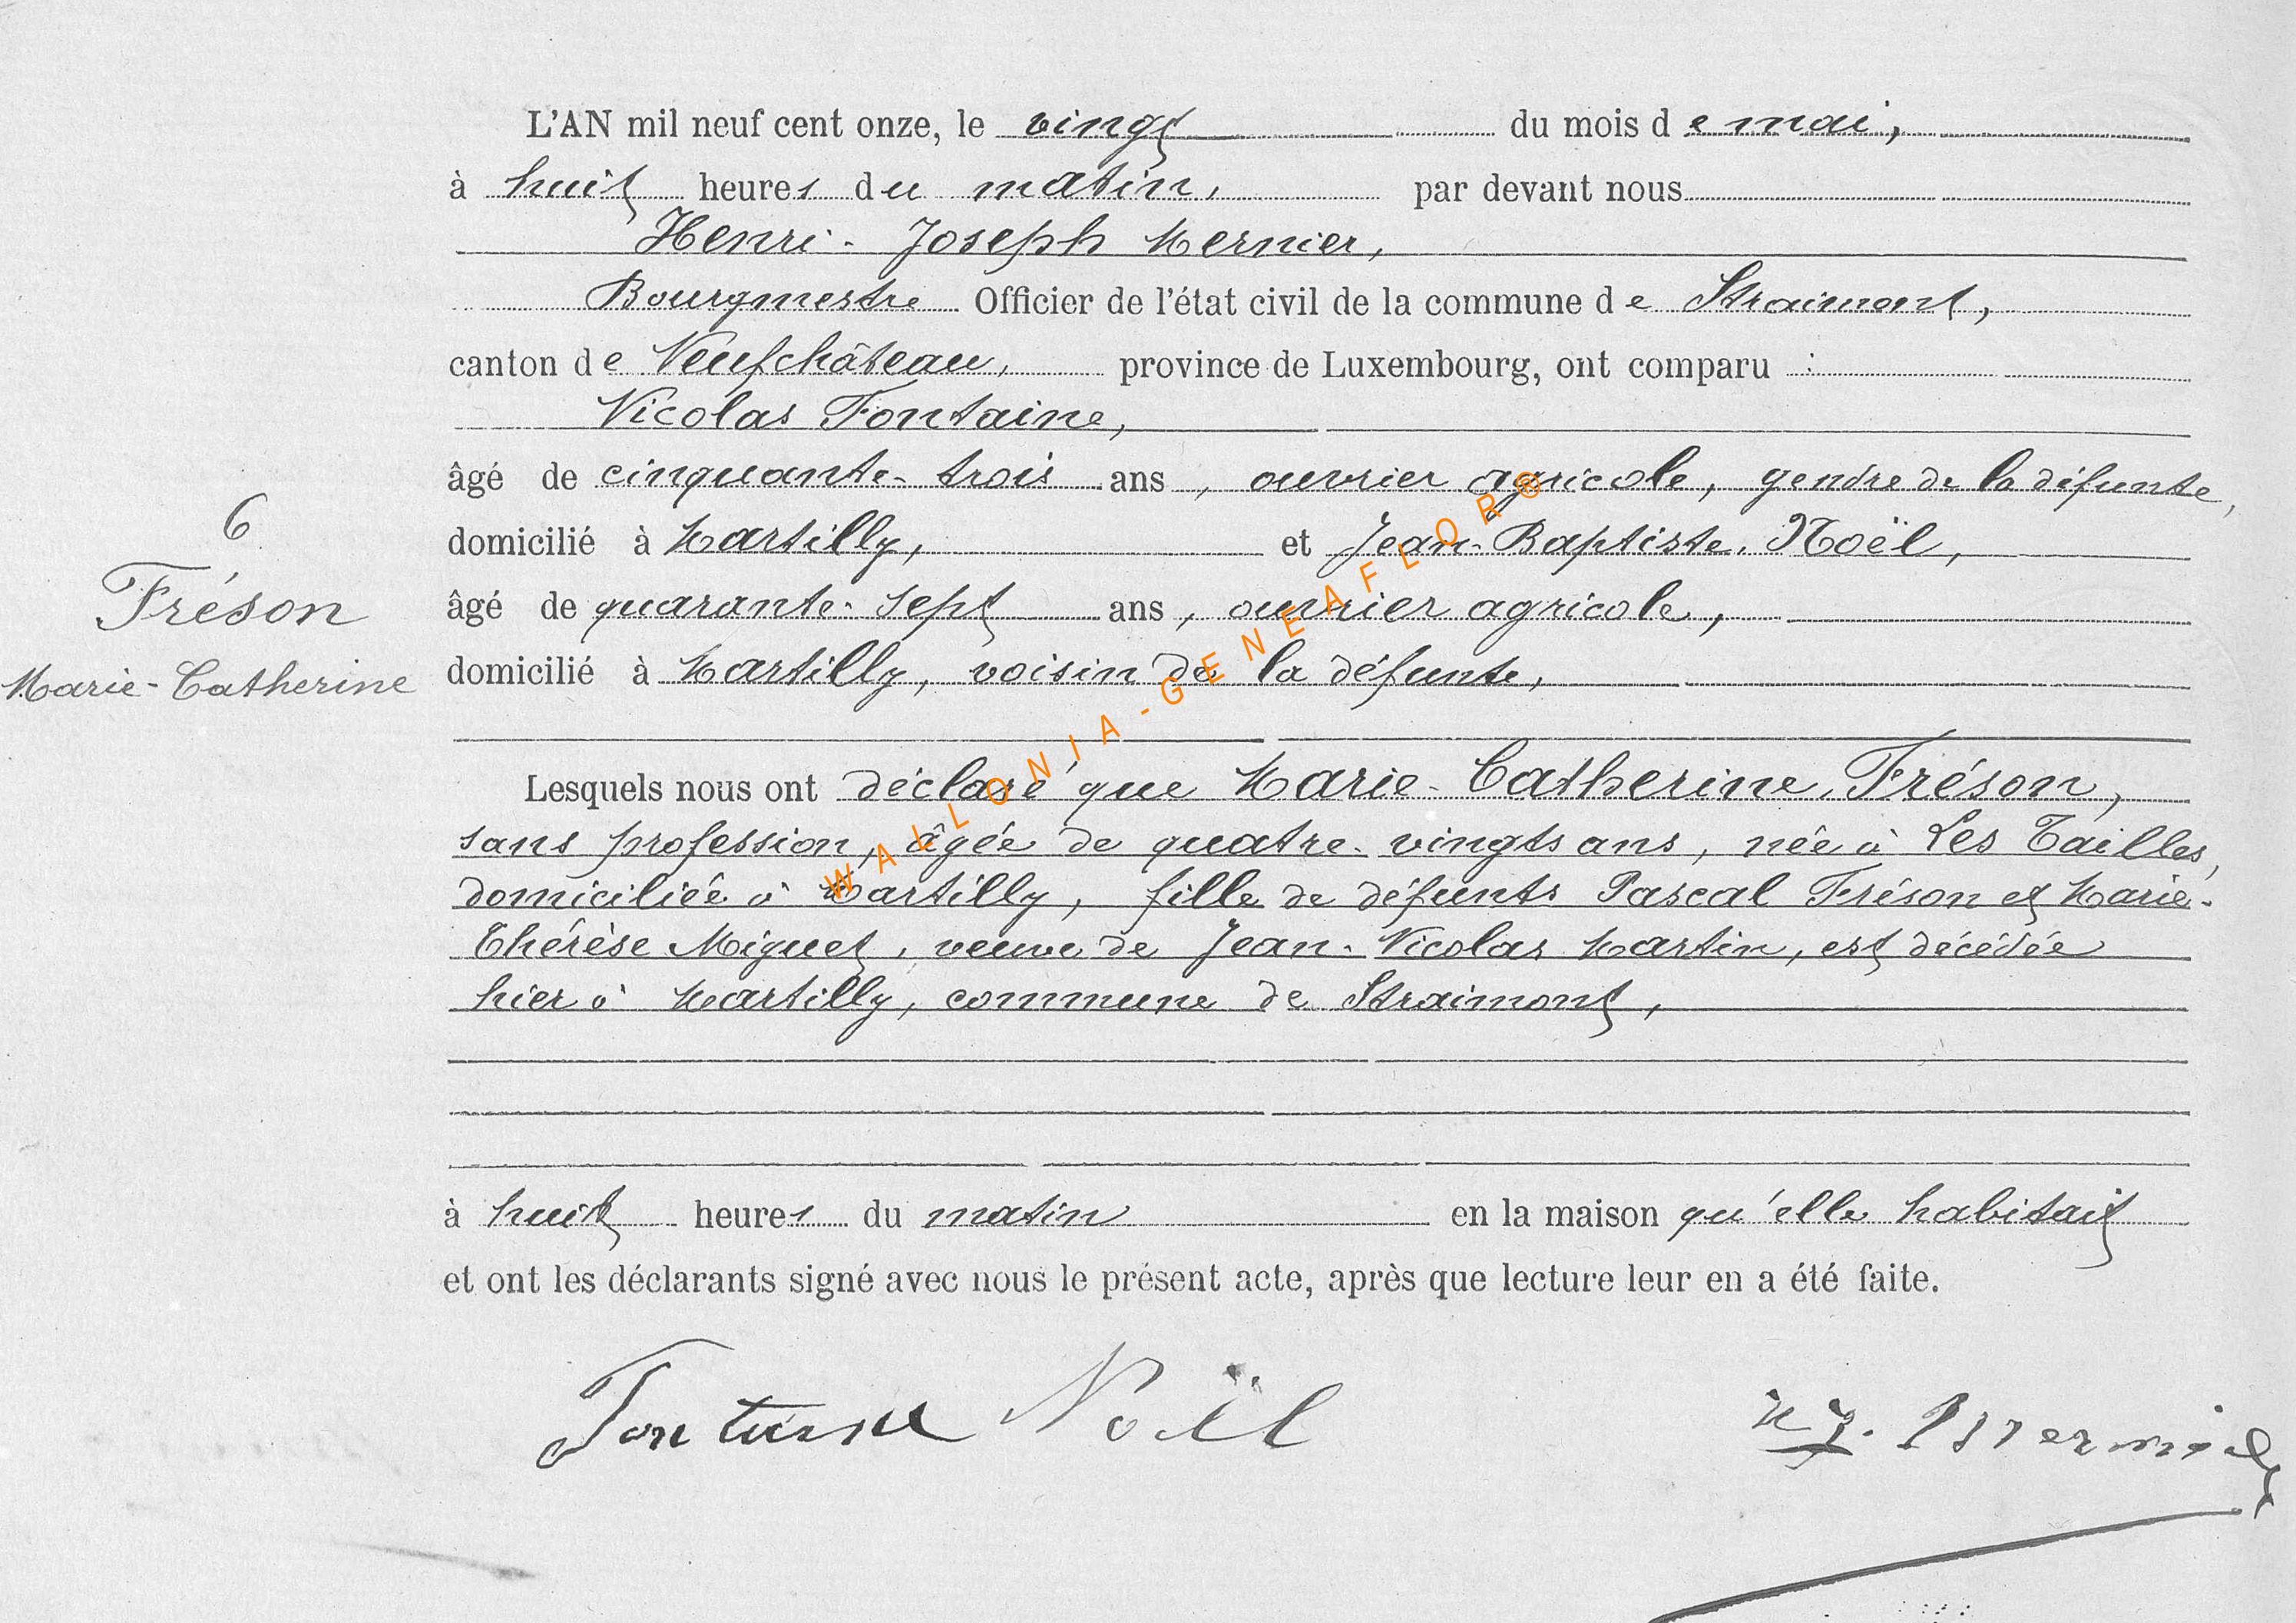 L'AN mil neuf cent onze, le vingt du mois de mai,
à huit heures du matin, par devant nous
Henri-Joseph Mernier,
Bourgmestre Officier de l'état civil de la commune de Straimont,
canton de Neufchâteau, province de Luxembourg, ont comparu :
Nicolas Fontaine,
âgé de cinquante-trois ans, ouvrier agricole, gendre de la défunte,
domicilié à Martilly, et Jean-Baptiste Noël,
âgé de quarante-sept ans, ouvrier agricole,
domicilié à Martilly, voisin de la défunte,
6
Fréson
Marie-Catherine
Lesquels nous ont déclaré que Marie-Catherine Fréson,
sans profession, âgée de quatre-vingts ans, née à Les Tailles,
domiciliée à Martilly, fille de défunts Pascal Fréson et Marie-
Thérèse Miguet, veuve de Jean-Nicolas Martin, est décédée
hier à Martilly, commune de Straimont,
à huit heures du matin en la maison qu'elle habitait
et ont les déclarants signé avec nous le présent acte, après que lecture leur en a été faite.
Fontaine Noël H J. Mernier
WALLONIA-GENEAFLOR®